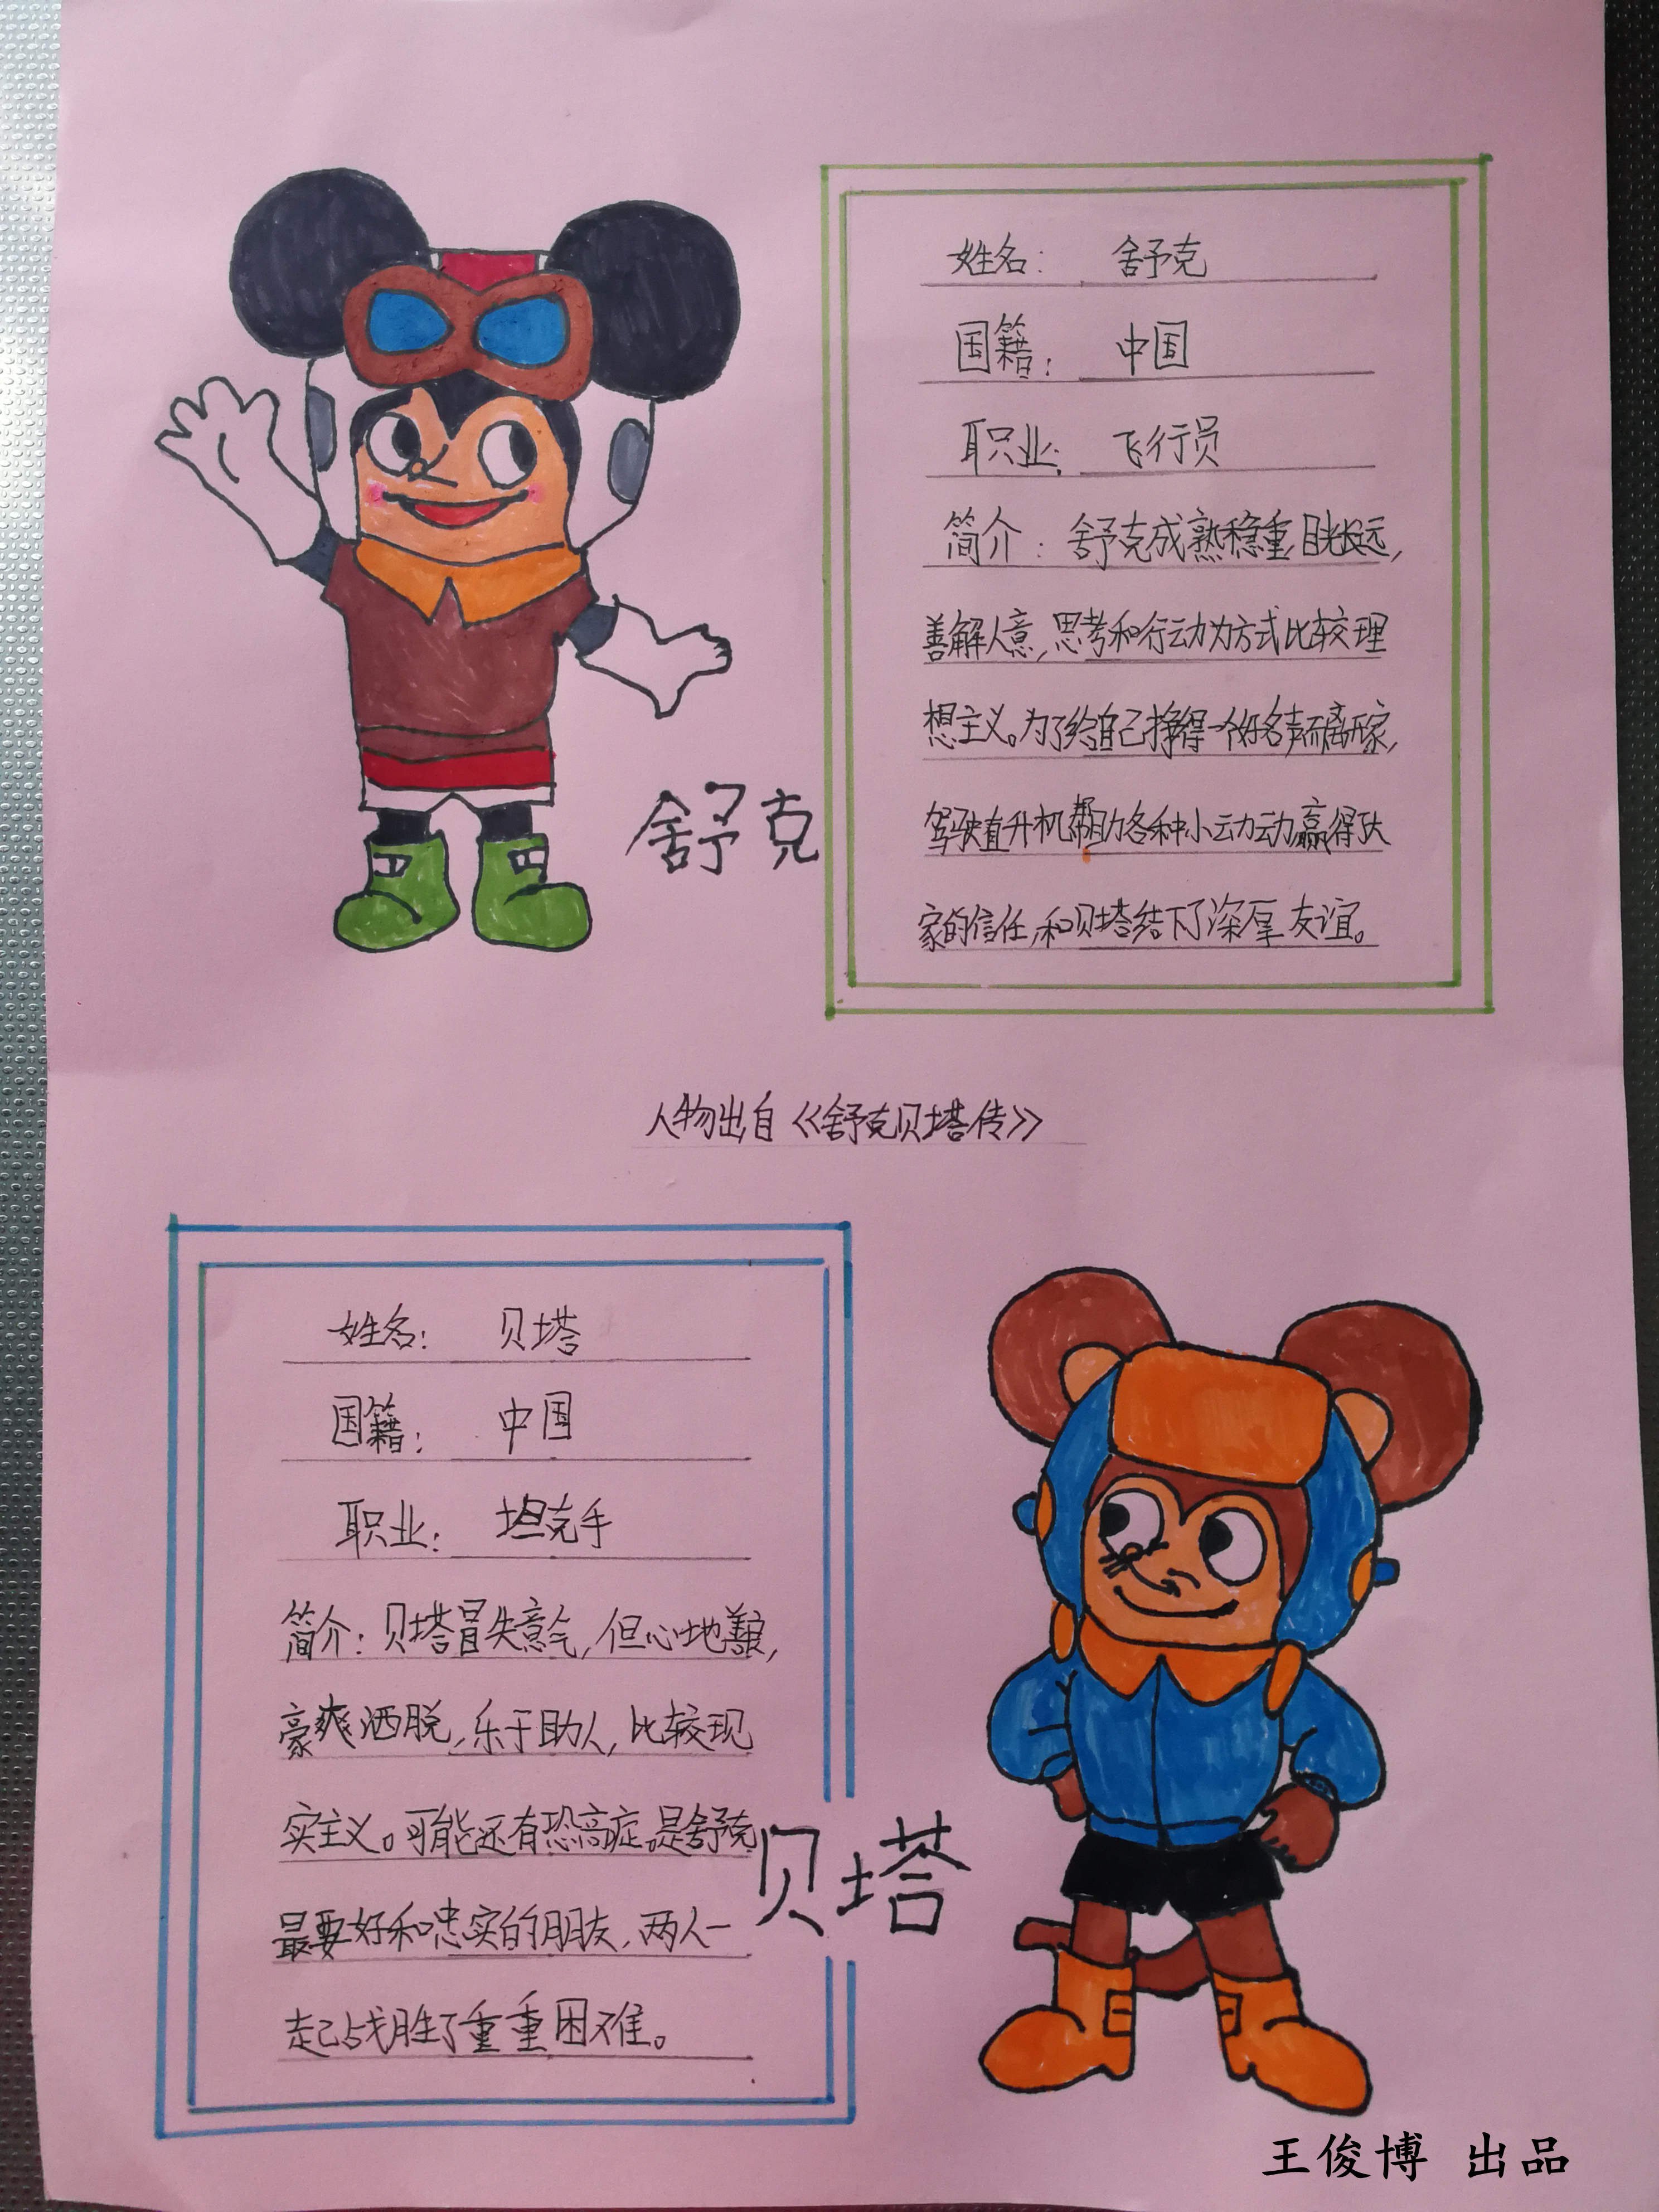 姓名：舒克
国籍：中国
职业：飞行员
简介：舒克成熟稳重,目光长远,
善解人意,思考和行动力方式比较理
想主义。为了给自己挣得一个好名声而离开家,
驾驶直升机帮助各种小动动赢得大
家的信任,和贝塔结下了深厚友谊。
舒克
人物出自《舒克贝塔传》
姓名：贝塔
国籍：中国
职业：坦克手
简介：贝塔冒失意气,但心地善良,
豪爽洒脱,乐于助人,比较现
实主义。可能还有恐高症。是舒克
最要好和忠实的朋友,两人一
起战胜了重重困难。
贝塔
王俊博 出品